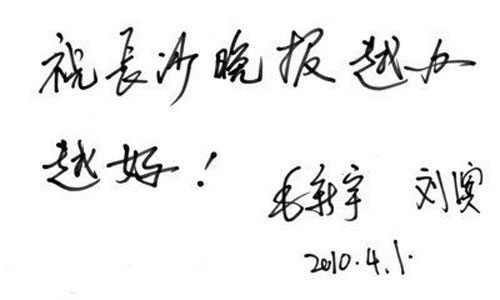 祝長沙晚报越办
越好!
毛新宇 刘滨
2010.4.1.